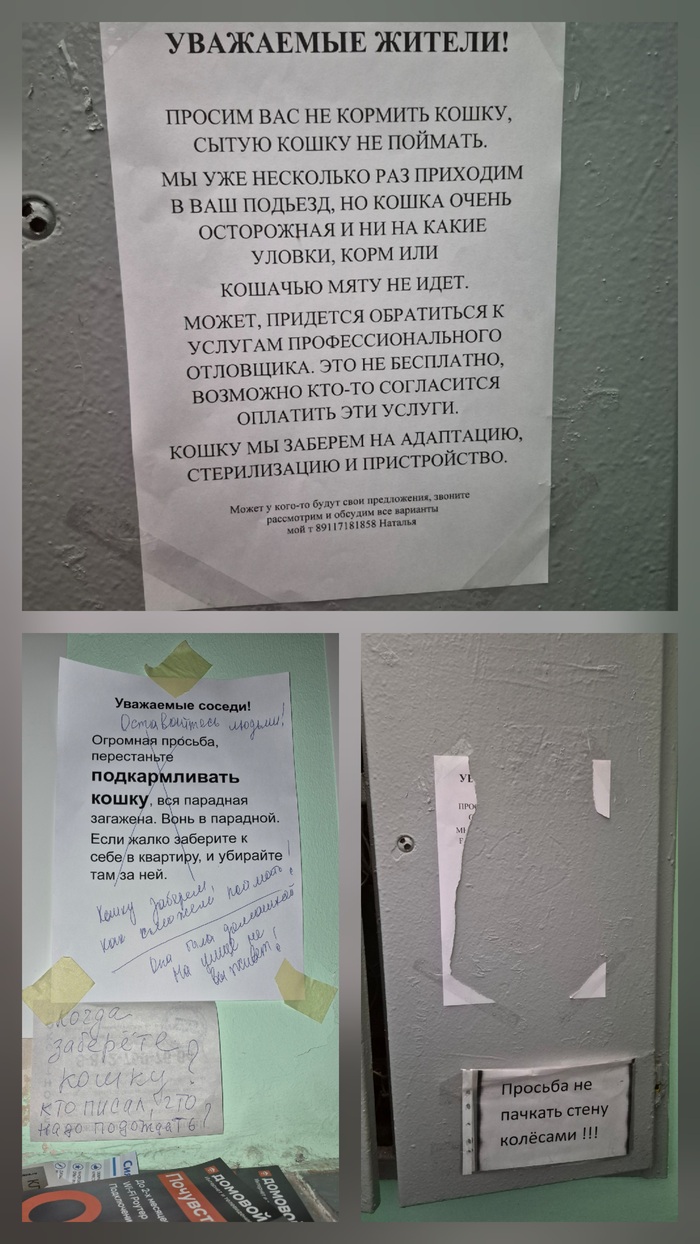 УВАЖАЕМЫЕ ЖИТЕЛИ!
ПРОСИМ ВАС НЕ КОРМИТЬ КОШКУ,
СЫТУЮ КОШКУ НЕ ПОЙМАТЬ.
МЫ УЖЕ НЕСКОЛЬКО РАЗ ПРИХОДИМ
В ВАШ ПОДЬЕЗД, НО КОШКА ОЧЕНЬ
ОСТОРОЖНАЯ И НИ НА КАКИЕ
УЛОВКИ, КОРМ ИЛИ
КОШАЧЬЮ МЯТУ НЕ ИДЕТ.
МОЖЕТ, ПРИДЕТСЯ ОБРАТИТЬСЯ К
УСЛУГАМ ПРОФЕССИОНАЛЬНОГО
ОТЛОВЩИКА. ЭТО НЕ БЕСПЛАТНО,
ВОЗМОЖНО КТО-ТО СОГЛАСИТСЯ
ОПЛАТИТЬ ЭТИ УСЛУГИ.
КОШКУ МЫ ЗАБЕРЕМ НА АДАПТАЦИЮ,
СТЕРИЛИЗАЦИЮ И ПРИСТРОЙСТВО.
Может у кого-то будут свои предложения, звоните
рассмотрим и обсудим все варианты
мой т 89117181858 Наталья
Уважаемые соседи!
Оставайтесь людьми!
Огромная просьба,
перестаньте
подкармливать
кошку, вся парадная
загажена. Вонь в парадной.
Если жалко заберите к
себе в квартиру, и убирайте
там за ней.
Кошку заберем,
как сможем поймать!
Она была домашкой
На улице не
выживет!
Когда
заберёте
кошку?
кто писал, что
надо подождать?
Почувст
ДОМОВОЙ
ДОМОВОЙ
До 2-х месяце
Wi-Fi Роутер
Подключени
УВ
ПРО
МЫ
Просьба не
пачкать стену
колёсами !!!